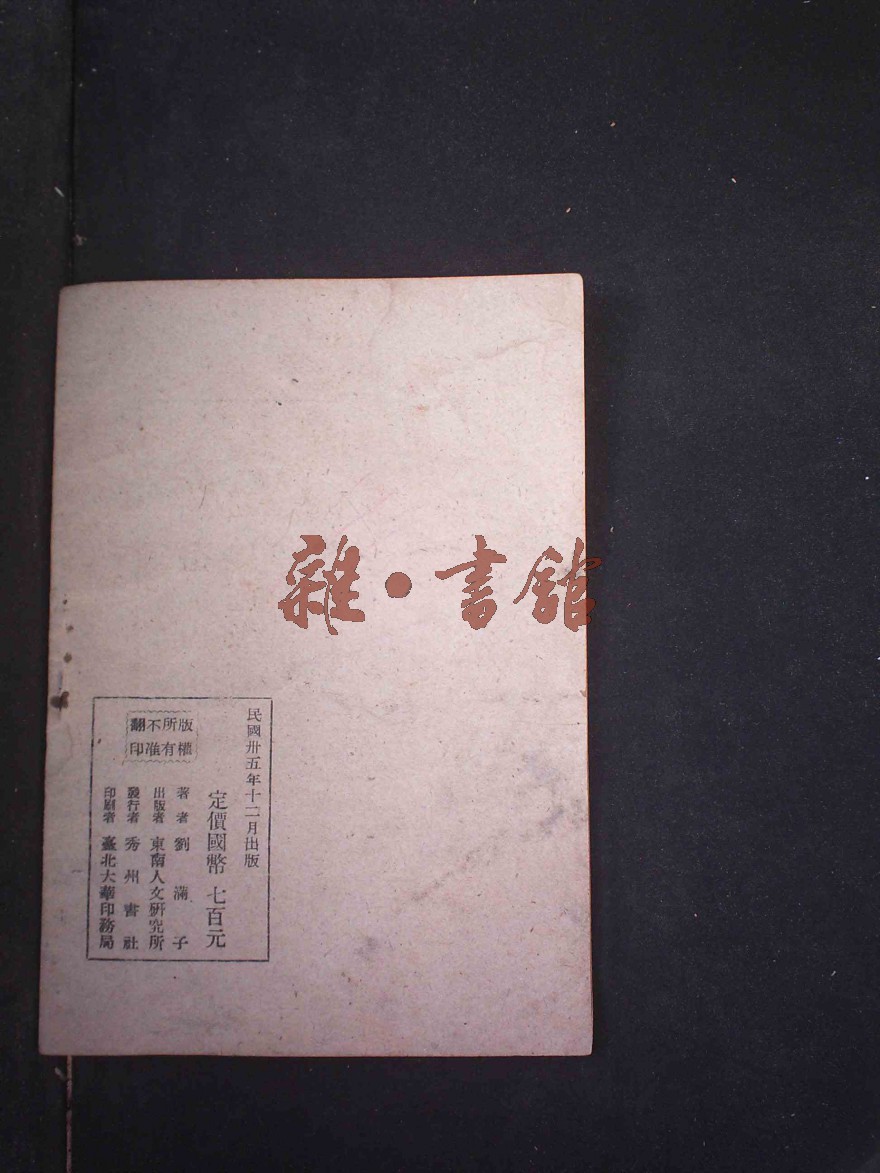 雜·書館
民國卅五年十二月出版
定價國幣 七百元
著者 劉滿子
出版者 東南人文研究所
發行者 秀州書社
印刷者 臺北大華印務局
版權
所有
不准
翻印